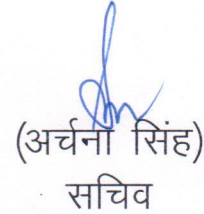 (अर्चना सिंह)
सचिव